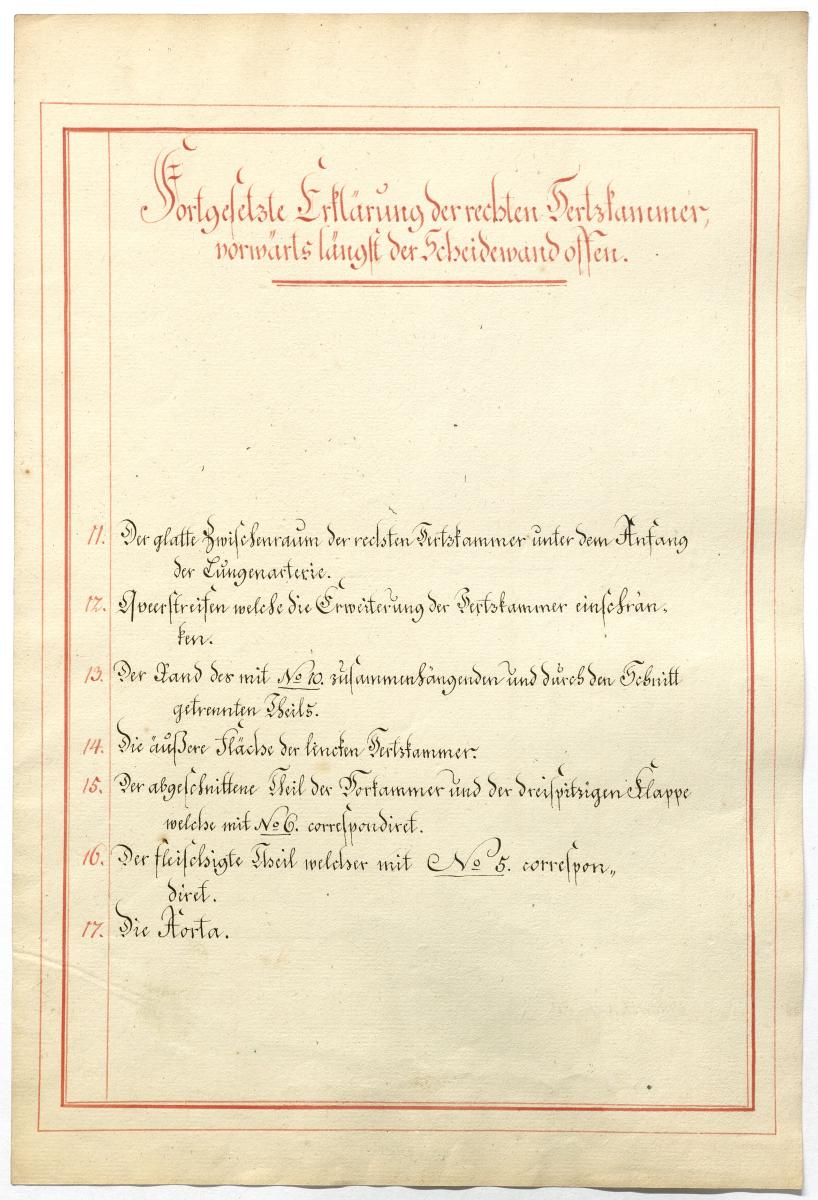 Fortgesetzte Erklärung der rechten Hertzkammer,
vorwärts längst der Scheidewand offen.
11. Der glatte Zwischenraum der rechten Hertzkammer unter dem Anfang
der Lungenarterie.
12. Qveerstreifen welche die Erweiterung der Hertzkammer einschrän-
ken.
13. Der Rand des mit No 10. zusammenhängenden und durch den Schnitt
getrennten Theils.
14. Die äußere Fläche der lincken Hertzkammer.
15. Der abgeschnittene Theil der Vorkammer und der dreispitzigen Klappe
welche mit No 6. correspondiret.
16. Der fleischigte Theil welcher mit No 5. correspon„
diret.
17. Die Aorta.